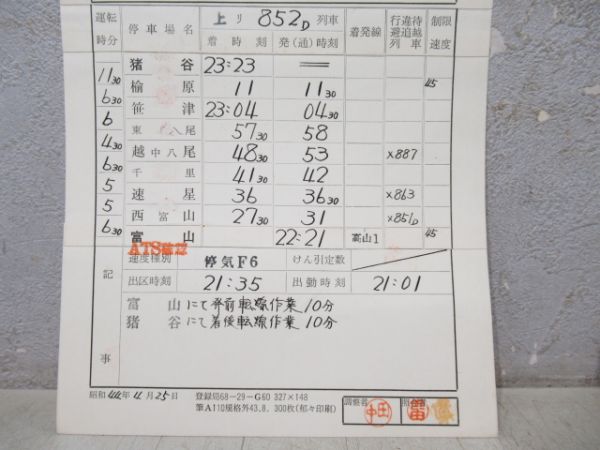 運転時分 停車場名 上リ 852D 列車 着発線 行違待避追越列車 制限速度
着時刻 発(通)時刻
猪谷 23:23 =
11 30 楡原 11 11 30 45
6 30 笹津 23:04 04 30
6 東八尾 57 30 58
4 30 越中八尾 48 30 53 ×887
6 30 千里 41 30 42
5 速星 36 36 30 ×863
5 西富山 27 30 31 ×856D
6 30 富山 22:21 高山1 45
速度種別 停気F6 けん引定数
出区時刻 21:35 出勤時刻 21:01
記事
富山にて発前転線作業10分
猪谷にて着後転線作業10分
昭和44年11月25日 登録局68-29-G60 327×148
筆A110規格外43.8.300枚(郁々印刷)
調整者 中田